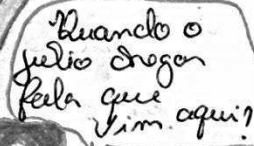 Quando o
julio chegar
fala que
vim aqui?